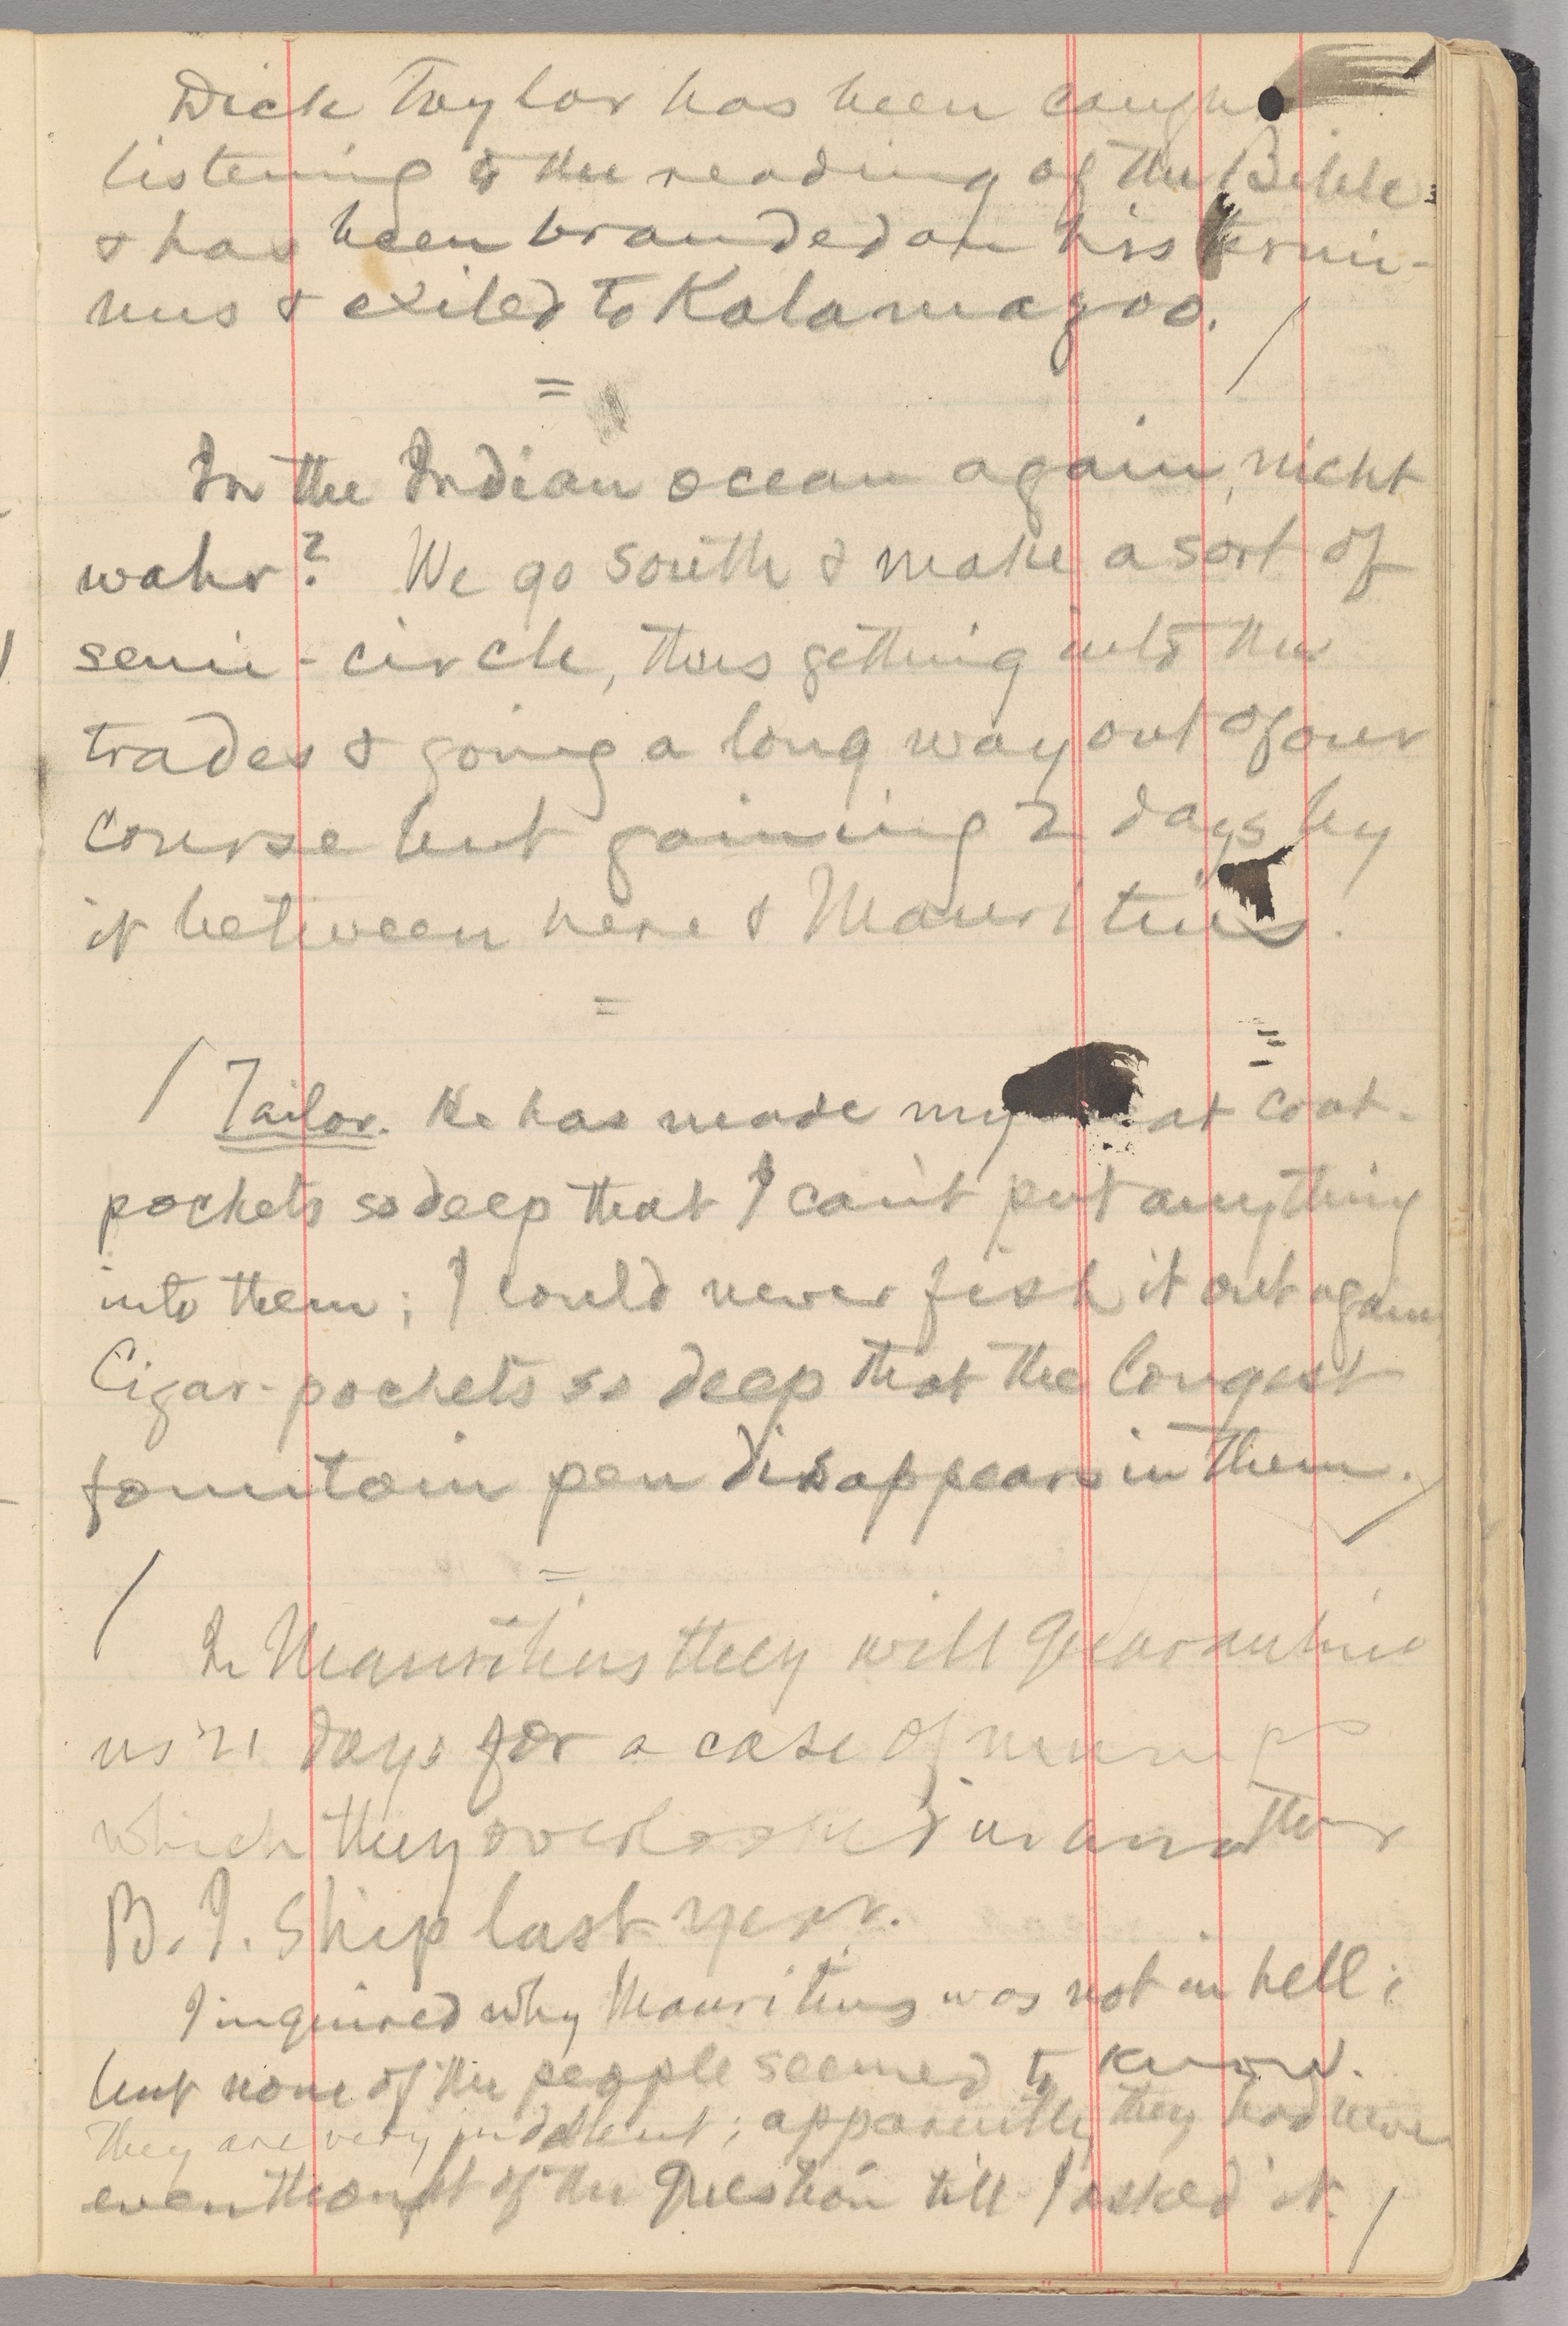 Dick Taylor has been caugh
listening to the reading of the Bible
& has been branded on his termi-
nus & exiled to Kalamazoo. /
=
In the Indian ocean again, nicht
wahr? We go south & make a sort of
semi-circle, thus getting into the
trades & going a long way out of our
course but gaining 2 days by
it between here & Mauritius.
=
/ Tailor. He has made my coat-
pockets so deep that I can't put anything
into them; I could never fish it out again
Cigar-pockets so deep that the longest
fountain pen disappears in them. /
=
/ In Mauritius they will quarantine
us 21 days for a case of mumps
which they overlooked in another
B. I. Ship last year.
I inquired why Mauritius was not in hell;
but none of the people seemed to know.
They are very indolent; apparently they had never
even thought of the question till I asked it. /